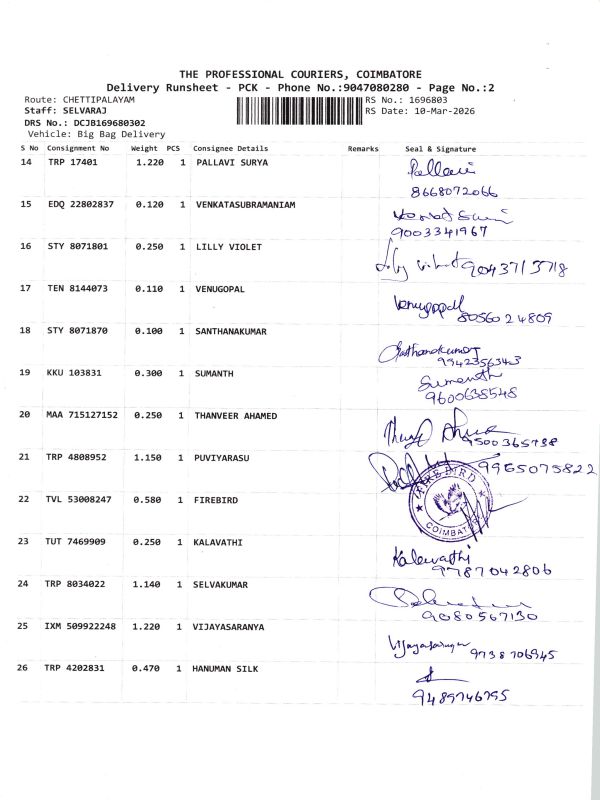 THE PROFESSIONAL COURIERS, COIMBATORE
Delivery Runsheet - PCK - Phone No.:9047080280 - Page No.:2
Route: CHETTIPALAYAM RS No.: 1696803
Staff: SELVARAJ RS Date: 10-Mar-2026
DRS No.: DCJB169680302
Vehicle: Big Bag Delivery
S No Consignment No Weight PCS Consignee Details Remarks Seal & Signature
14 TRP 17401 1.220 1 PALLAVI SURYA Pallavi
8668072066
15 EDQ 22802837 0.120 1 VENKATASUBRAMANIAM
9003341967
16 STY 8071801 0.250 1 LILLY VIOLET
17 TEN 8144073 0.110 1 VENUGOPAL Venugopal
8056024809
18 STY 8071870 0.100 1 SANTHANAKUMAR Santhanakumar
9942356343
19 KKU 103831 0.300 1 SUMANTH Sumanth
9600638548
20 MAA 715127152 0.250 1 THANVEER AHAMED
9500365738
21 TRP 4808952 1.150 1 PUVIYARASU 9965075822
22 TVL 53008247 0.580 1 FIREBIRD FIREBIRD
COIMBATORE
23 TUT 7469909 0.250 1 KALAVATHI Kalavathi
9787042806
24 TRP 8034022 1.140 1 SELVAKUMAR
9080567130
25 IXM 509922248 1.220 1 VIJAYASARANYA Vijayasaranya
9738706945
26 TRP 4202831 0.470 1 HANUMAN SILK
9489746795